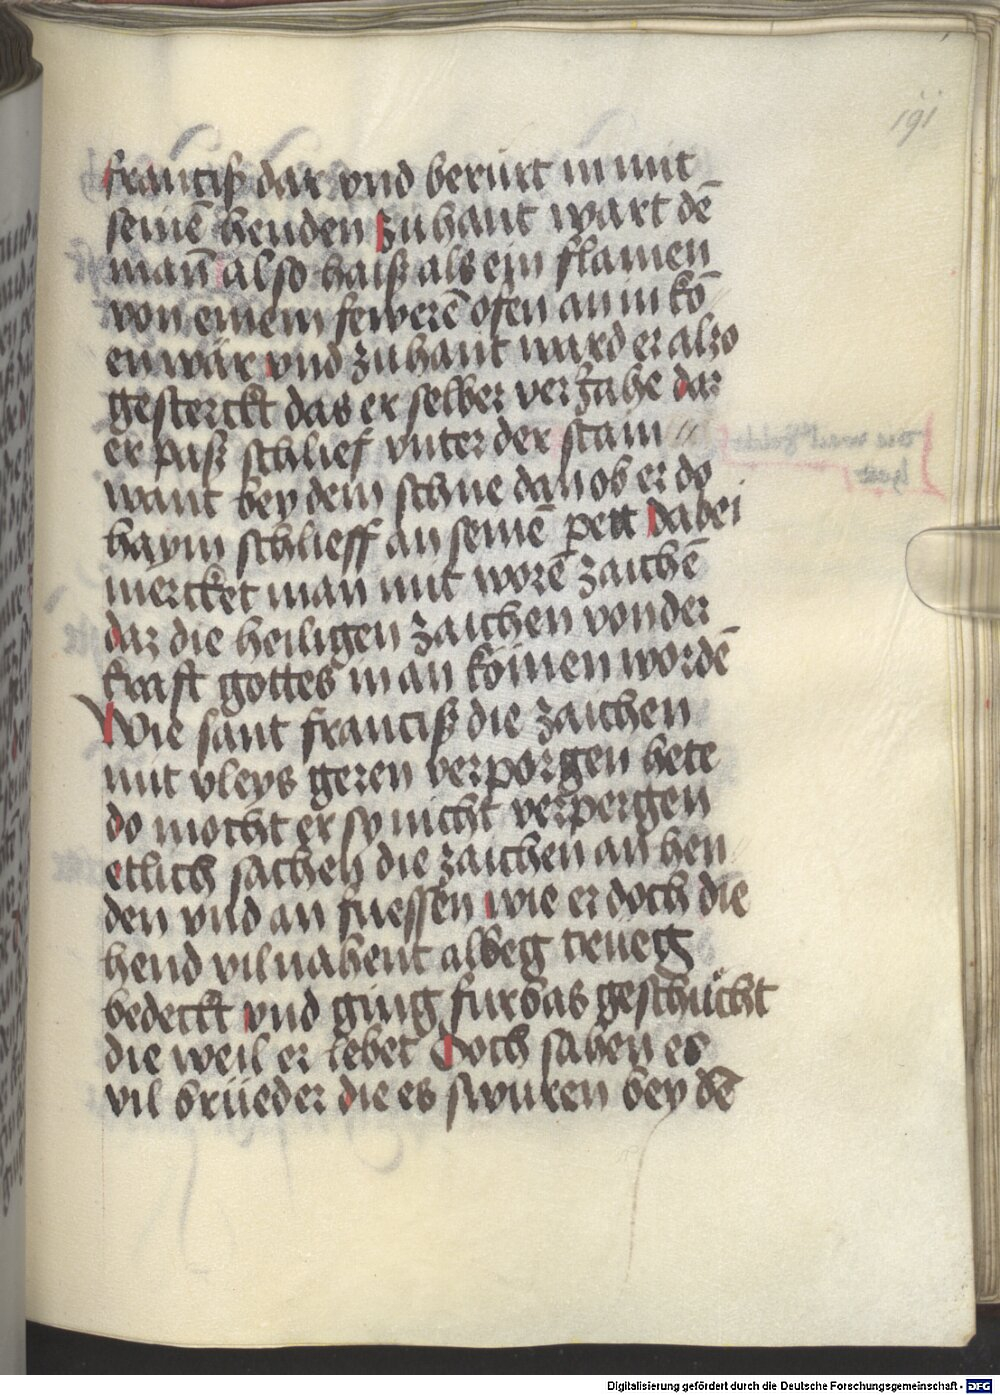 191
franciß dar vnd berürt in mit
seinē henden zu hant wart dē
man̄ also haiß als ein flamen
von einem fewerē ofen an in kō
en wär vnd zu hant ward er also
gesterckt das er selber verjahe daz
er paß schlief vnter der stain
want bey dem schne dan ob er do
haym schlieff an seinē pett dabei
mercket man mit worē zaichē
daz die heiligen zaichen von der
kraft gottes in an kömen wordē
Wie sant franciß die zaichen
mit vleys geren verporgen hete
do mocht er sy nicht verpergen
etlich sachen die zaichen an hen
den vnd an fuessen wie er doch die
hend vil nahent albeg trueg
bedeckt vnd ging furbas geschücht
die weil er lebet Doch sahen es
vil brüeder die es swuren bey dē
Digitalisierung gefördert durch die Deutsche Forschungsgemeinschaft - DFG